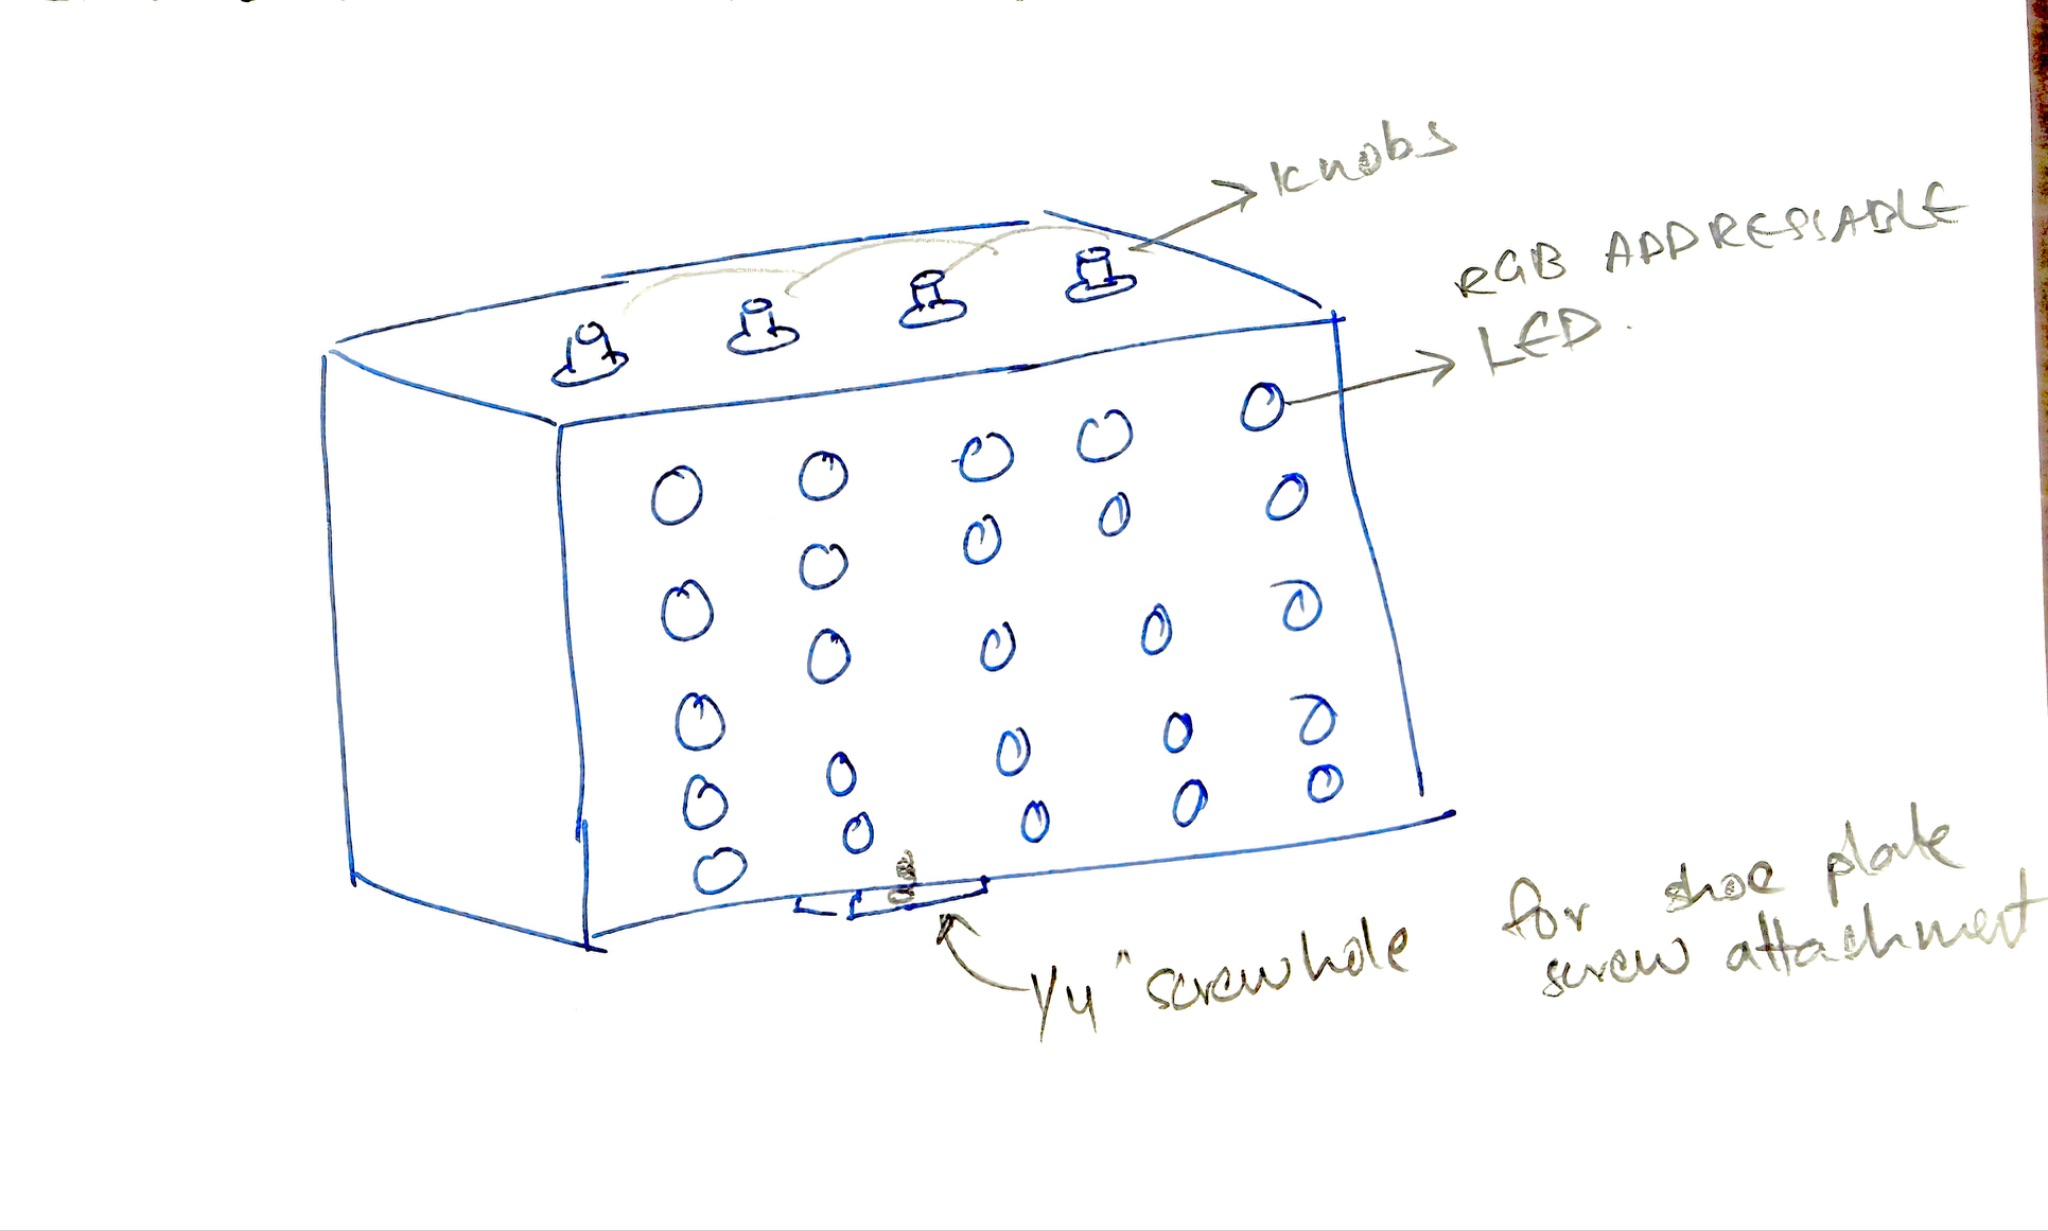 Knobs
RGB ADDRESSABLE
LED.
1/4" screwhole for shoe plate
screw attachment